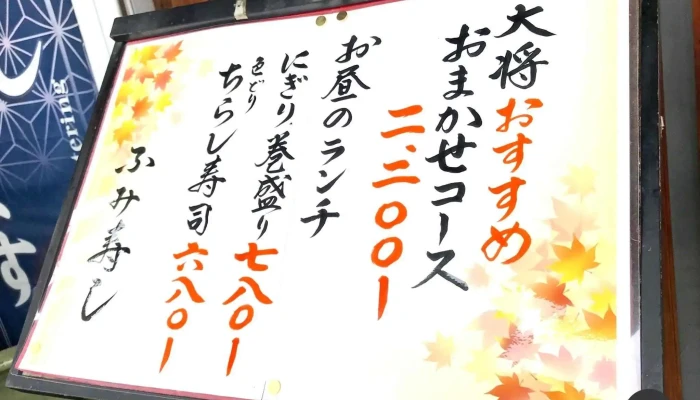 大将おすすめ
おまかせコース
二、二〇〇ー
お昼のランチ
にぎり、巻盛り 七八〇ー
色どり
ちらし寿司 六八〇ー
ふみ寿し
し
tering
す